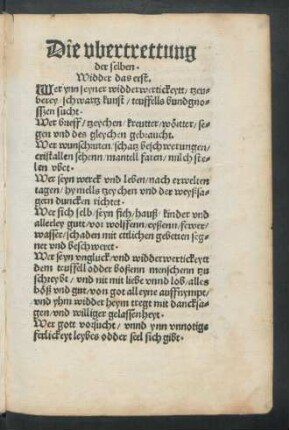 Die vbertrettung
der selben.
Widder das erst.
Wer ynn seyner widderwertickeytt/ tzeu-
berey/schwartz kunst/ teuffells bundgno-
ssen sucht.
Wer brieff/ tzeychen/kreutter/wortter/se-
gen vnd des gleychen gebraucht.
Wer wunschruten/schatz beschwerungen/
cristallen sehenn/mantell faren/milch ste-
len vbet.
Wer seyn werck vnd leben/nach erwelten
tagen/hymells tzeychen vnd der weyssa-
gern duncken richtet.
Wer sich selb/seyn fich/hauß/kinder vnd
allerley gutt/vor wolffenn/eyßenn/fewer/
wasser/schaden mit ettlichen gebetten seg-
net vnd beschweret.
Wer seyn vngluck/vnd widderwertickeytt
dem teuffell odder boßenn menschenn zu
schreybt/ vnd nit mit liebe vnnd lob/alles
böß vnd gut/von got alleyne auffnympt/
vnd yhm widder heym tregt mit dancksa-
gen/vnd williger gelassenheyt.
Wer gott vorsucht/ vnnd ynn vnnotig-
ferlickeyt leybes odder seel sich gibt.